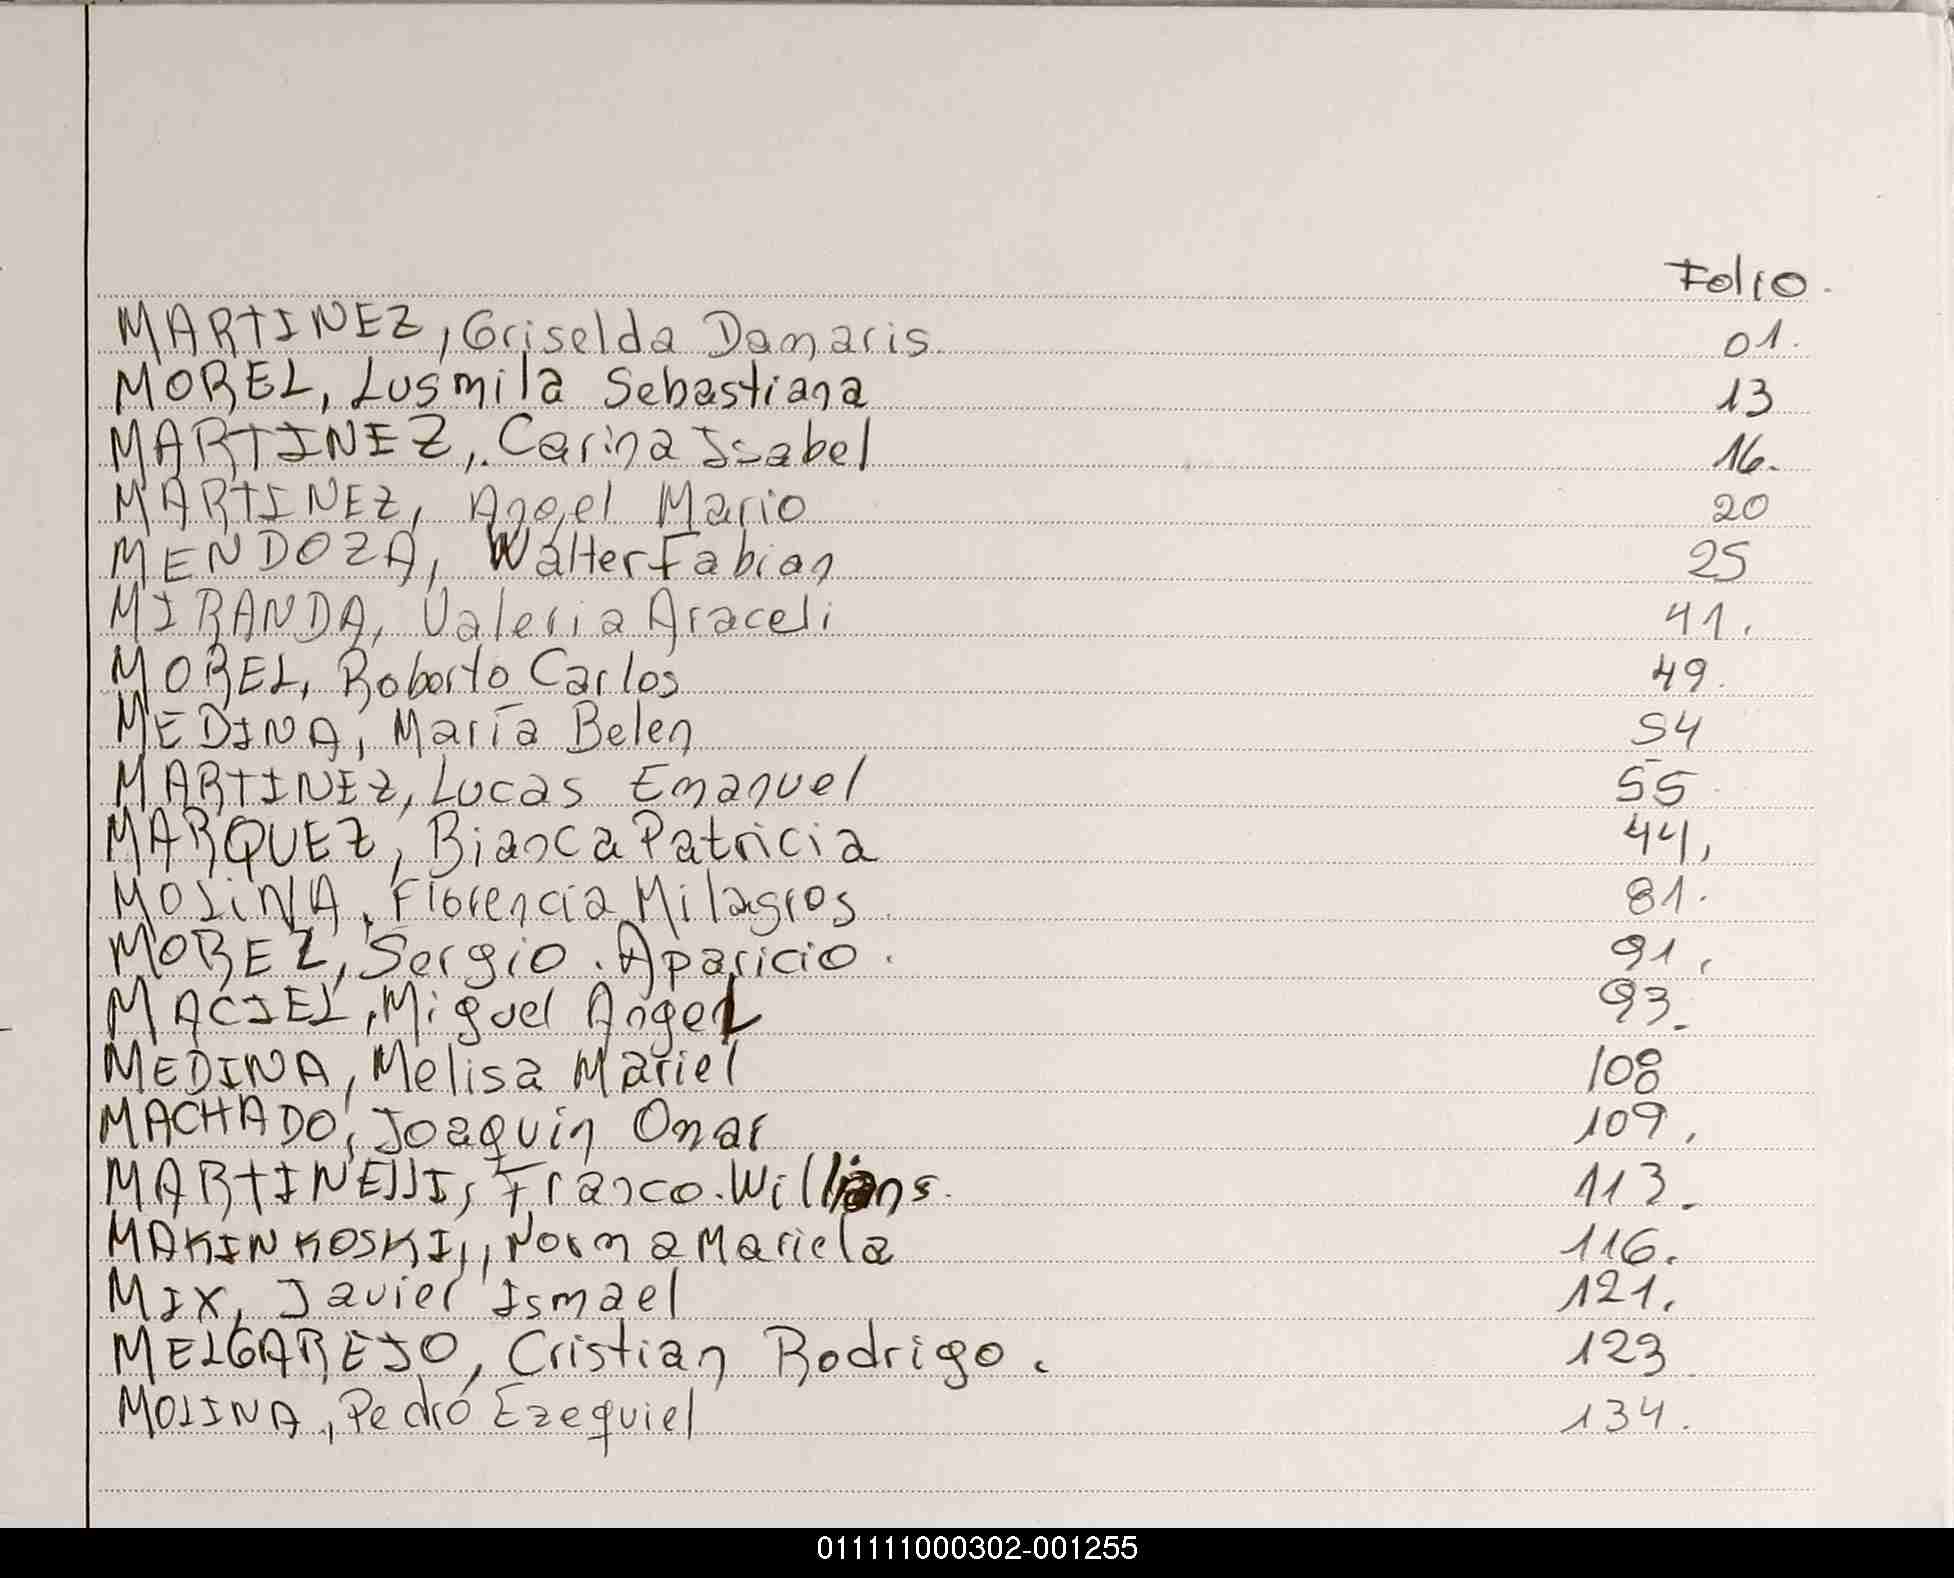 Folio.
MARTINEZ, Griselda Damaris. 01.
MOREL, Lusmila Sebastiana 13
MARTINEZ, Carina Isabel 16.
MARTINEZ, Angel Mario 20
MENDOZA, Walter Fabian 25
MIRANDA, Valeria Araceli 41.
MOREL, Roberto Carlos 49.
MEDINA, María Belen 54
MARTINEZ, Lucas Emanuel 55
MARQUEZ, Bianca Patricia 44,
MOLINA, Florencia Milagros 81.
MOREL, Sergio. Aparicio. 91,
MACIEL, Miguel Angel 93.
MEDINA, Melisa Mariel 108
MACHADO, Joaquin Omar 109,
MARTINELLI, Franco. Willians. 113.
MAKINKOSKI,, Norma Mariela 116.
MIX, Javier Ismael 121.
MELGAREJO, Cristian Rodrigo. 123
MOLINA, Pedro Ezequiel 134.
011111000302-001255